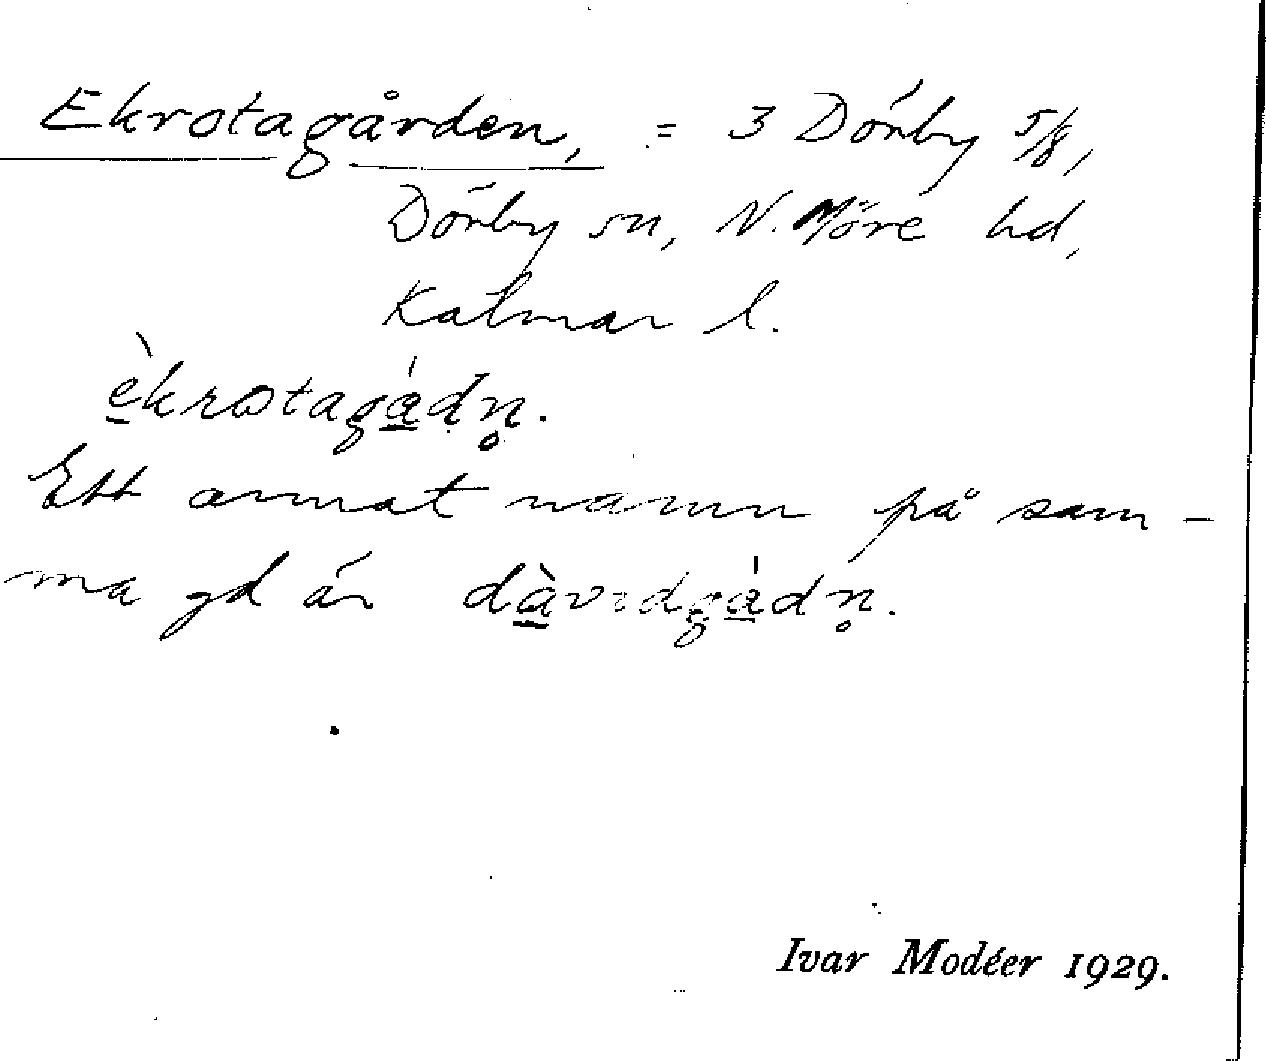 Ekrotagården, = 3 Dörby 5/8,
Dörby sn, N. Möre hd,
Kalmar l.
è̱krotagá̱dn̥.
Ett annat namn på sam-
ma gd är dà̱vıdgá̱dn̥.
Ivar Modéer 1929.